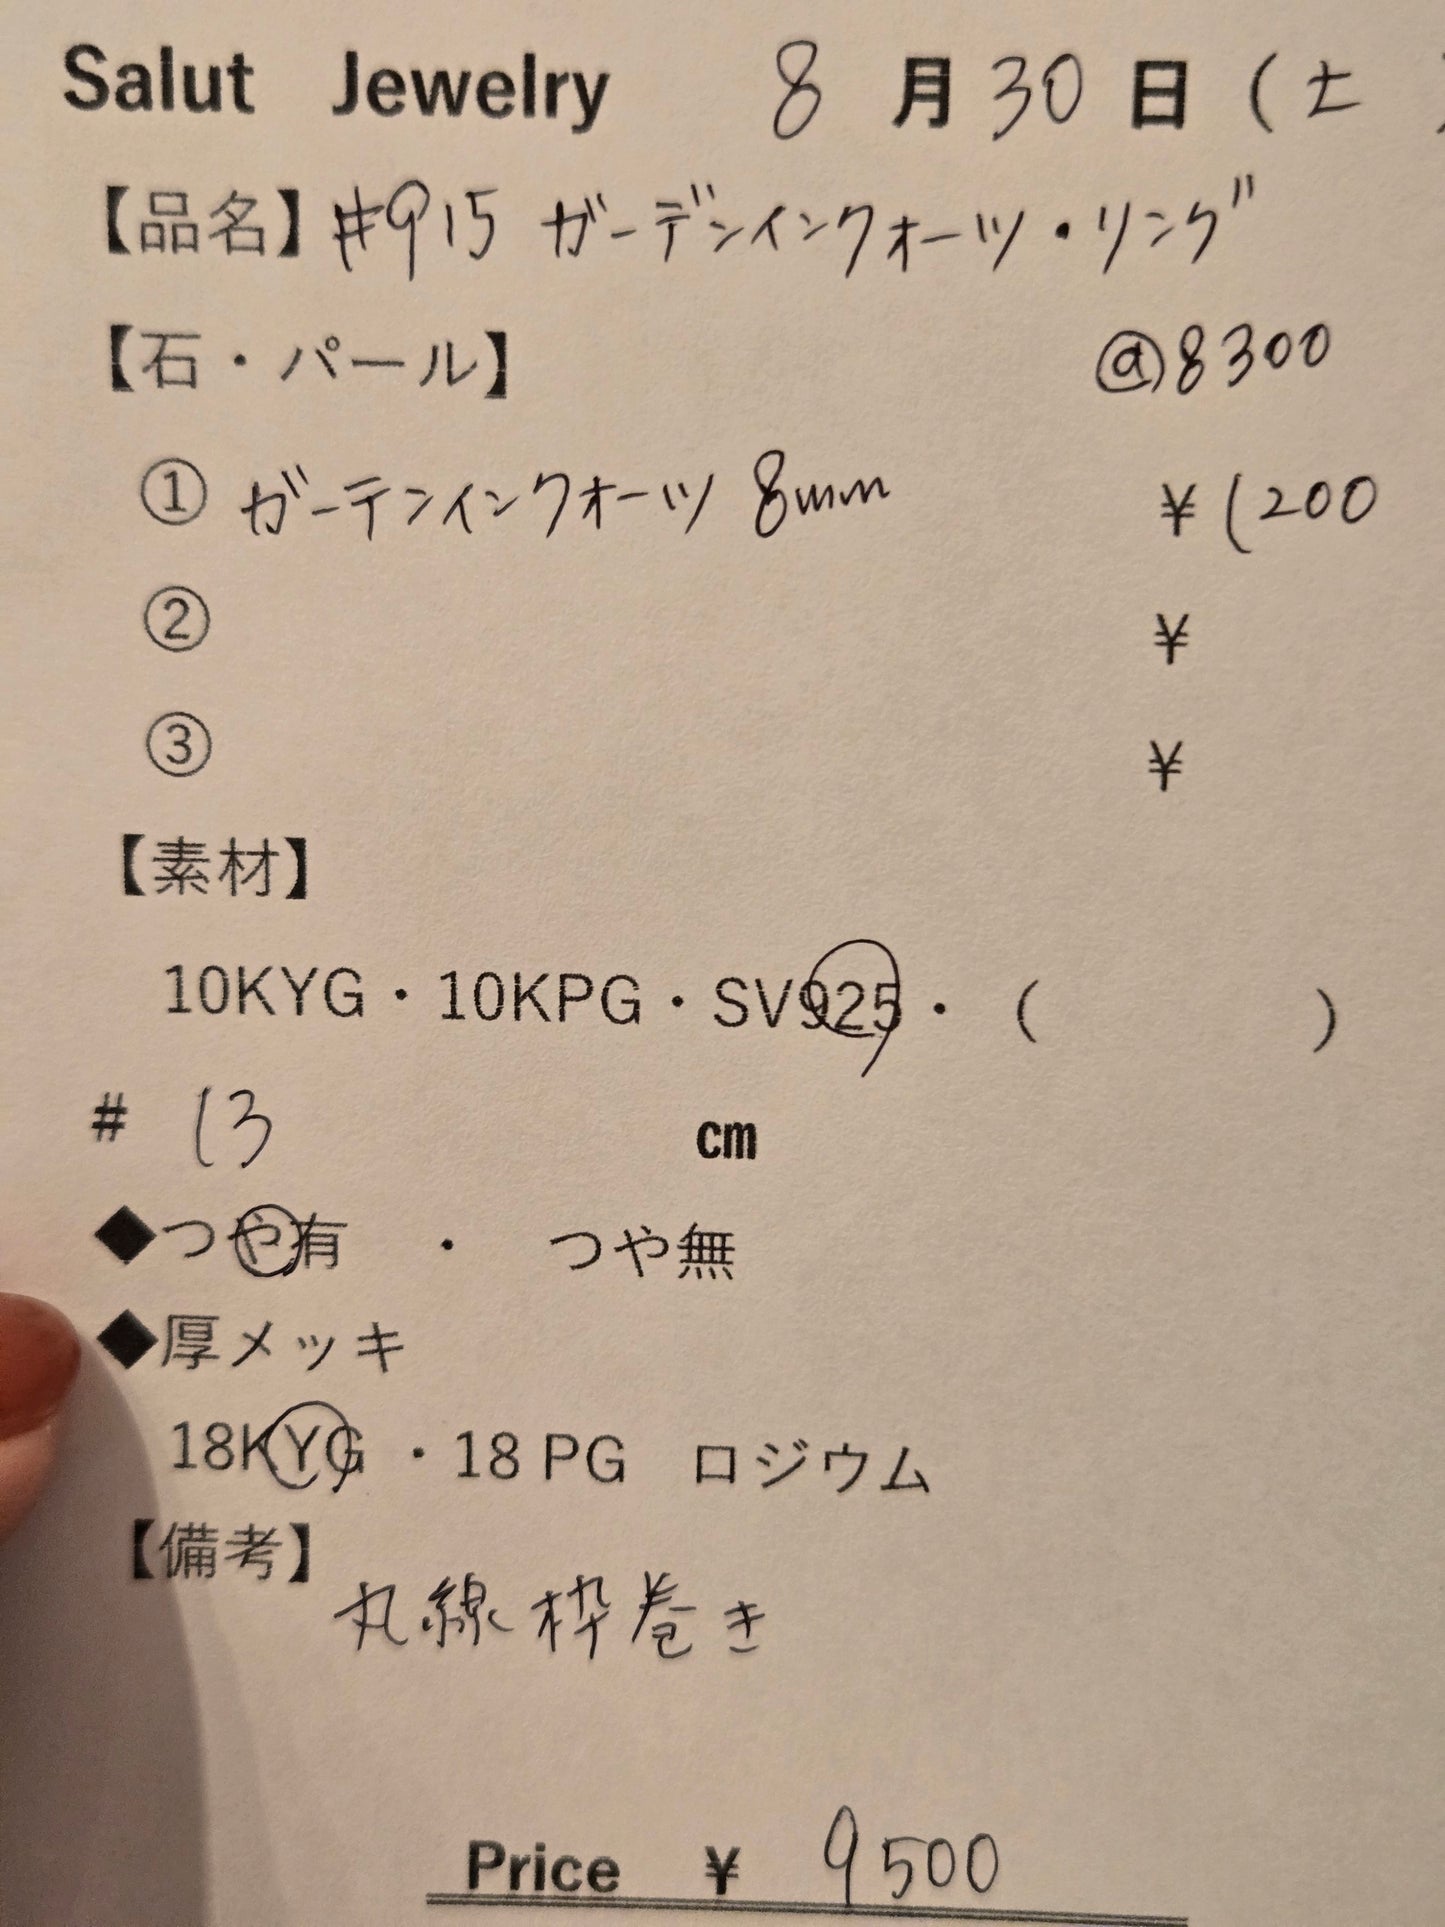 Salut Jewelry 8月30日(土)
【品名】#915 ガーデンインクォーツ・リング
【石・パール】 @8300
① ガーテンインクォーツ 8mm ¥1200
② ¥
③ ¥
【素材】
10KYG・10KPG・SV925・( )
# 13 cm
◆つや有 ・ つや無
◆厚メッキ
18KYG ・18 PG ロジウム
【備考】
丸線枠巻き
Price ¥ 9500